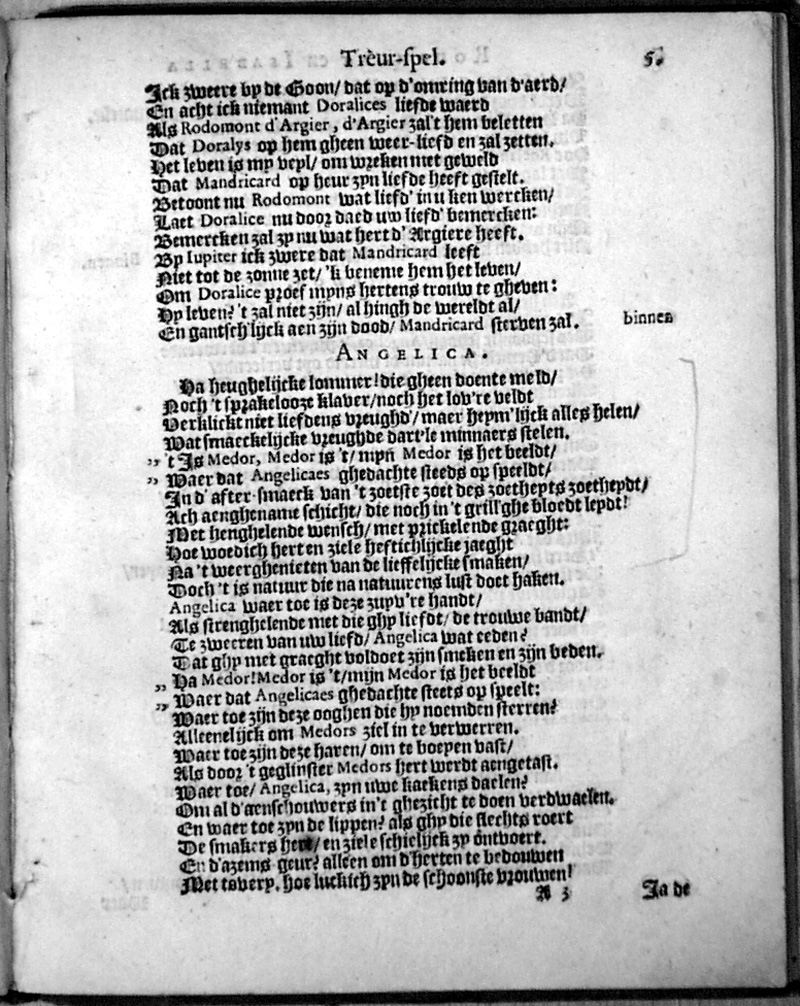 Trèur-spel. 5.
Ick zweere by de Goon/ dat op d'omring van d'aerd/
En acht ick niemant Doralices liefde waerd
Als Rodomont d'Argier, d'Argier zal't hem beletten
Dat Doralys op hem gheen weer-liefd en zal zetten.
Het leven is my veyl/ om wreken met geweld
Dat Mandricard op heur zyn liefde heeft gestelt.
Betoont nu Rodomont wat liefd' in u ken wercken/
Laet Doralice nu door daed uw liefd' bemercken:
Bemercken zal zy nu wat hert d'Argiere heeft.
By Iupiter ick zwere dat Mandricard leeft
Niet tot de zonne zet/ 'k beneme hem het leven/
Om Doralice proef myns hertens trouw te gheven:
Hy leven? 't zal niet zijn/ al hingh de wereldt al/
En gantsch'lijck aen zijn dood/ Mandricard sterven zal. binnen
ANGELICA.
Ha heughelijcke lommer! die gheen doente meld/
Noch 't sprakelooze klaver/ noch het lov're veldt
Verklickt niet liefdens vreughd'/ maer heym'lijck alles helen/
Wat smaeckelijcke vreughde dart'le minnaers stelen.
„ 't Is Medor, Medor is 't/ myn Medor is het beeldt/
„ Waer dat Angelicaes ghedachte steeds op speeldt/
In d'after-smaeck van 't zoetste zoet des zoetheyts zoetheydt/
Ach aenghename schicht/ die noch in 't grill'ghe bloedt leydt!
Met henghelende wensch/ met prickelende graeght:
Hoe woedich hert en ziele heftichlijcke jaeght
Na 't weerghenieten van de lieffelijcke smaken/
Doch 't is natuur die na natuurens lust doet haken.
Angelica waer toe is deze zuyv're handt/
Als strenghelende met die ghy liefdt/ de trouwe bandt/
Te zweeren van uw liefd/ Angelica wat eeden?
Dat ghy met graeght voldoet zijn smeken en zijn beden.
„ Ha Medor! Medor is 't/ mijn Medor is het beeldt
„ Waer dat Angelicaes ghedachte steets op speelt:
Waer toe zijn deze ooghen die hy noemden sterren?
Alleenelijck om Medors ziel in te verwerren.
Waer toe zijn deze haren/ om te boeyen vast/
Als door 't geglinster Medors hert werdt aengetast.
Waer toe/ Angelica, zyn uwe kaekens daelen?
Om al d'aenschouwers in't ghezicht te doen verdwaelen.
En waer toe zyn de lippen? als ghy die slechts roert
De smakers hert/ en ziele schielijck zy ontvoert.
En d'azems geur? alleen om d'herten te bedouwen
Met tovery. hoe luckich zyn de schoonste vrouwen!
A 3 Ja de